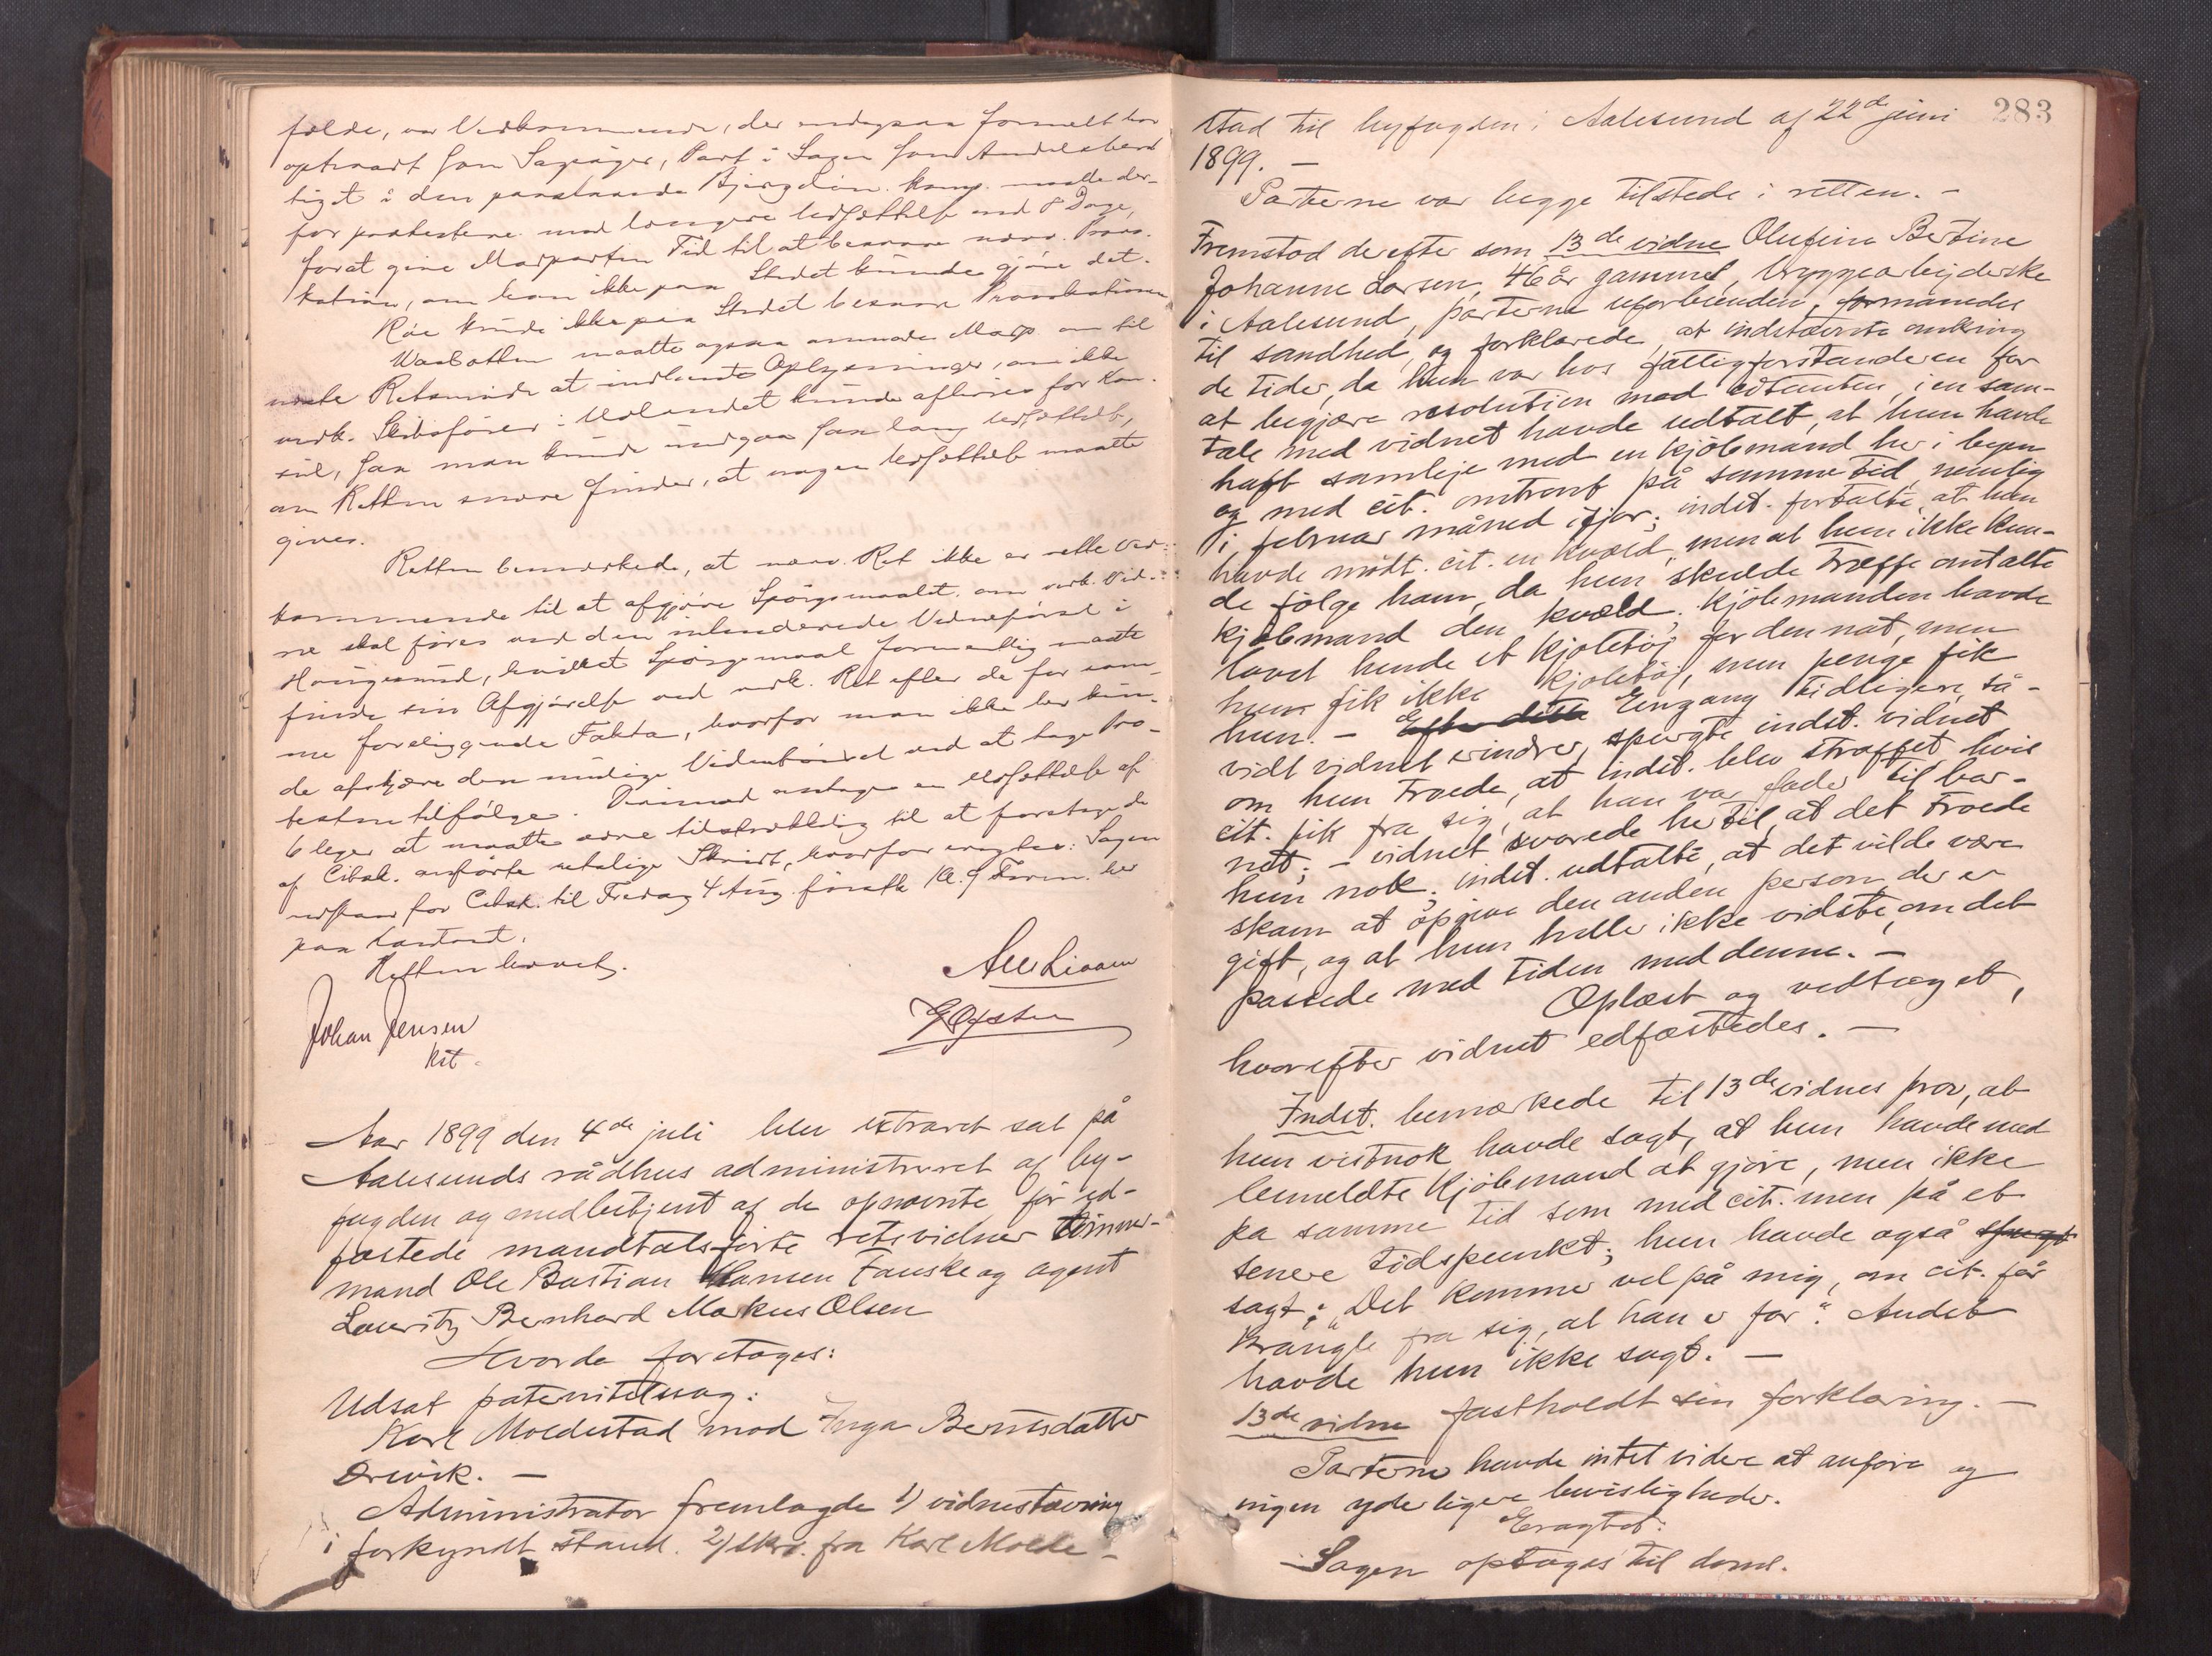 følde, var Vedkommende, der endogsaa formelt har
optraadt som Sagsøger, Part i Sagen som Andelsberet
tiget i den paastaaende Bjergeløn. Komp. maatte der-
for protestere mod længere Udsættelse end 8 Dage,
forat give Modparten Tid til at besvare nærv. Provo-
kation, om han ikke paa Stedet kunde gjøre det.
Röe kunde ikke paa Stedet besvare Provokationen
Waaboth maatte ogsaa anmode Modp. om til
næste Retsmøde at indhente Oplysninger, om ikke
vedk. Skibsfører i Udlandet kunde afhøres for Kon-
sul, saa man kunde undgaa saa lang Udsættelse,
om Retten endvere finder, at nogen Udsættelse maatte
gives.
Retten bemærkede, at nærv. Ret ikke er rette Ved-
kommende til at afgjøre Spørgsmaalet om vedk. Vid-
ne skal føres ved den intenderede Vidneførsel i
Haugesund, hvilket Spørgsmaal formentlig maatte
finde sin Afgjørelse ved vedk. Ret efter de for sam-
me foreliggende Fakta, hvorfor man ikke her kun-
de afskjære den mulige Vidneførsel ved at tage Pro-
testen tilfølge. Derimod antages en Udsættelse af
6 Uger at maatte være tilstrækkelig til at foretage de
af Citat. anførte retslige Skridt, hvorfor eragtes: Sagen
udstaar for Citat. til Fredag 4 Aug. førstk Kl. 9 Form. her
paa Raadhuset.
Retten hævet.
Aue Liaaen
Johan Jensen
Kst.
Aar 1899 den 4de juli blev extraret sat på
Aalesunds rådhus administreret af by-
fogden og medbetjent af de opnævnte før ed-
fæstede mandtalsførte retsvidner tømmer-
mand Ole Bastian Hansen Fauske og agent
Lauritz Bernhard Markus Olsen
Hvorda foretoges:
Udsat paternitetssag:
Karl Moldestad mod Inga Berntsdatter
Ørevik. —
Administrator fremlagde 1) vidnestævning
i forkyndt stand. 2) skr. fra Karl Molde-
283
stad til byfogden i Aalesund af 22de juni
1899. —
Parterne var begge tilstede i retten. —
Fremstod derefter som 13de vidne Olufine Bertine
Johanne Larsen, 46 år gammel, bryggearbejderske
i Aalesund, parterne uforbeienden, formanedes
til sandhed, og forklarede, at indstævnte omkring
de tider, da hun var hos fattigforstanderen for
at begjære resolution mod citanten, i en sam-
tale med vidnet havde udtalt, at hun havde
haft samleje med en kjøbmand her i byen
og med cit. omtrent på samme tid, nemlig
i februar måned ifjor; indst. fortalte, at hun
havde mødt cit. en kvæld, men at hun ikke kun-
de følge ham, da hun skulde træffe omtalte
kjøbmand den kvæld, kjøbmanden havde
lovet hende et kjoletøj for den nat, men
hun fik ikke kjoletøj, men penge fik
hun. — Efter dette Engang tidligere, så-
vidt vidnet erindrer, spurgte indst. vidnet
om hun troede, at indst. blev straffet hvis
cit. fik fra sig, at han var fader til bar-
net; — vidnet svarede hertil, at det troede
hun nok; indst. udtalte, at det vilde være
skam at opgive den anden person, der er
gift, og at hun heller ikke vidste, om det
passede med tiden med denne. —
Oplæst og vedtaget,
hvorefter vidnet edfæstedes. —
Indst. bemærkede til 13de vidnes prov, at
hun vistnok havde sagt, at hun havde med
bemeldte kjøbmand at gjøre, men ikke
på samme tid som med cit. men på et
senere tidspunkt; hun havde også spurgt
sagt: „Det kommer vel på mig, om cit. får
krangle fra sig, at han er far". Andet
havde hun ikke sagt. —
13de vidne fastholdt sin forklaring. —
Parterne havde intet videre at anføre og
ingen yderligere bevisligheder.
Eragtet:
Sagen optages til doms.